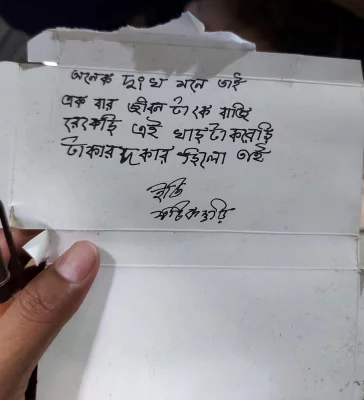 অনেক দুঃখ মনে তাই
এক বার জীবন টাকে বাজি
রেখেছি এই খাইটা করেছি
টাকার দকার ছিলো তাই
ইতি